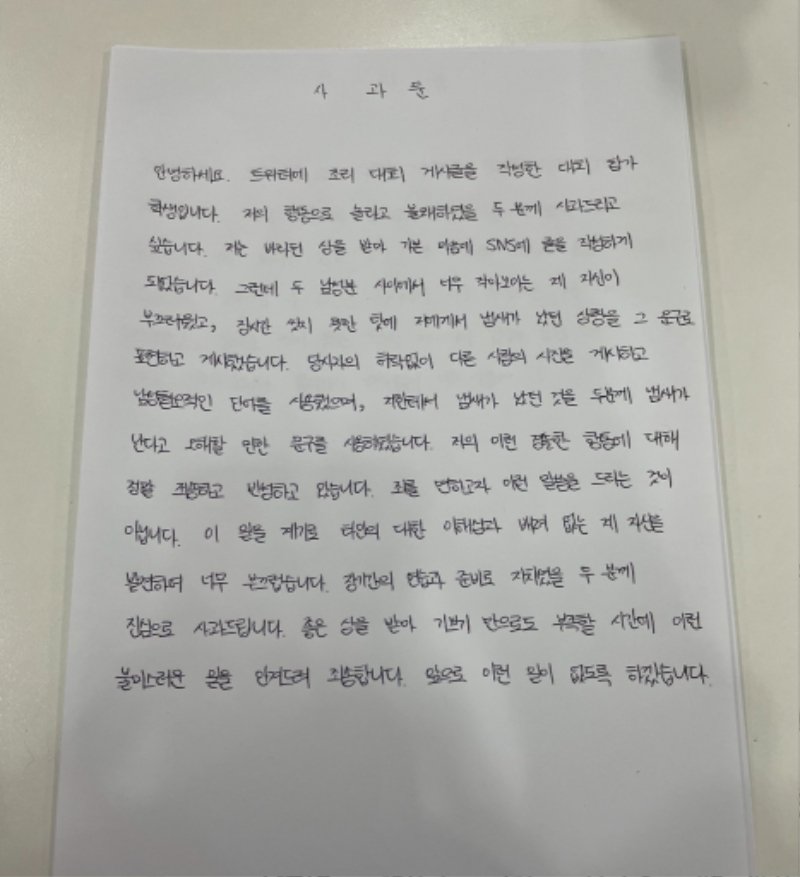 사 과 문
안녕하세요. 트위터에 조리 대회 게시글을 작성한 대회 참가
학생입니다. 저의 행동으로 놀라고 불쾌하셨을 두 분께 사과드리고
싶습니다. 저는 바라던 상을 받아 기쁜 마음에 SNS에 글을 작성하게
되었습니다. 그런데 두 남성분 사이에서 너무 작아보이는 제 자신이
부끄러웠고, 장시간 씻지 못한 탓에 저에게서 냄새가 났던 상황을 그 문구로
표현하고 게시했습니다. 당사자의 허락없이 다른 사람의 사진을 게시하고
남성혐오적인 단어를 사용했으며, 저한테서 냄새가 났던 것을 두분께 냄새가
난다고 오해할 만한 문구를 사용하였습니다. 저의 이런 경솔한 행동에 대해
정말 죄송하고 반성하고 있습니다. 죄를 면하고자 이런 말씀을 드리는 것이
아닙니다. 이 일을 계기로 타인의 대한 이해심과 배려 없는 제 자신을
발견하며 너무 부끄럽습니다. 장기간의 연습과 준비로 지치셨을 두 분께
진심으로 사과드립니다. 좋은 상을 받아 기쁘기 만으로도 부족할 시간에 이런
불미스러운 일을 안겨드려 죄송합니다. 앞으로 이런 일이 없도록 하겠습니다.